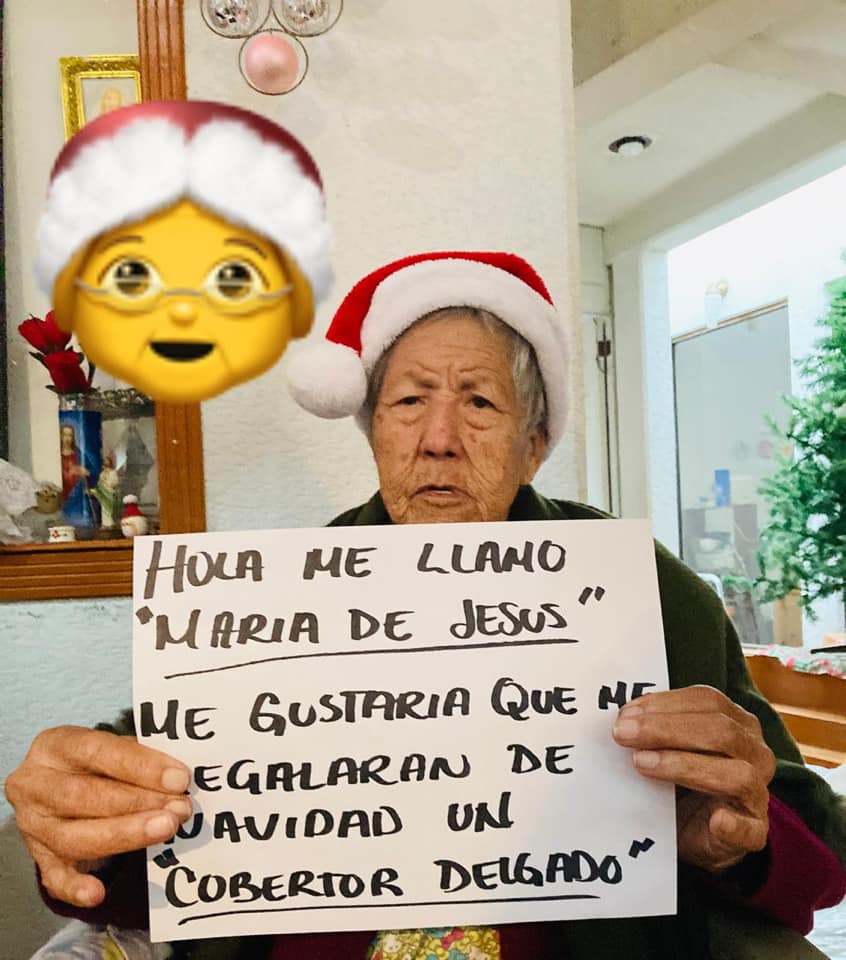 HOLA ME LLAMO
"MARIA DE JESUS"
ME GUSTARIA QUE ME
REGALARAN DE
NAVIDAD UN
"COBERTOR DELGADO"